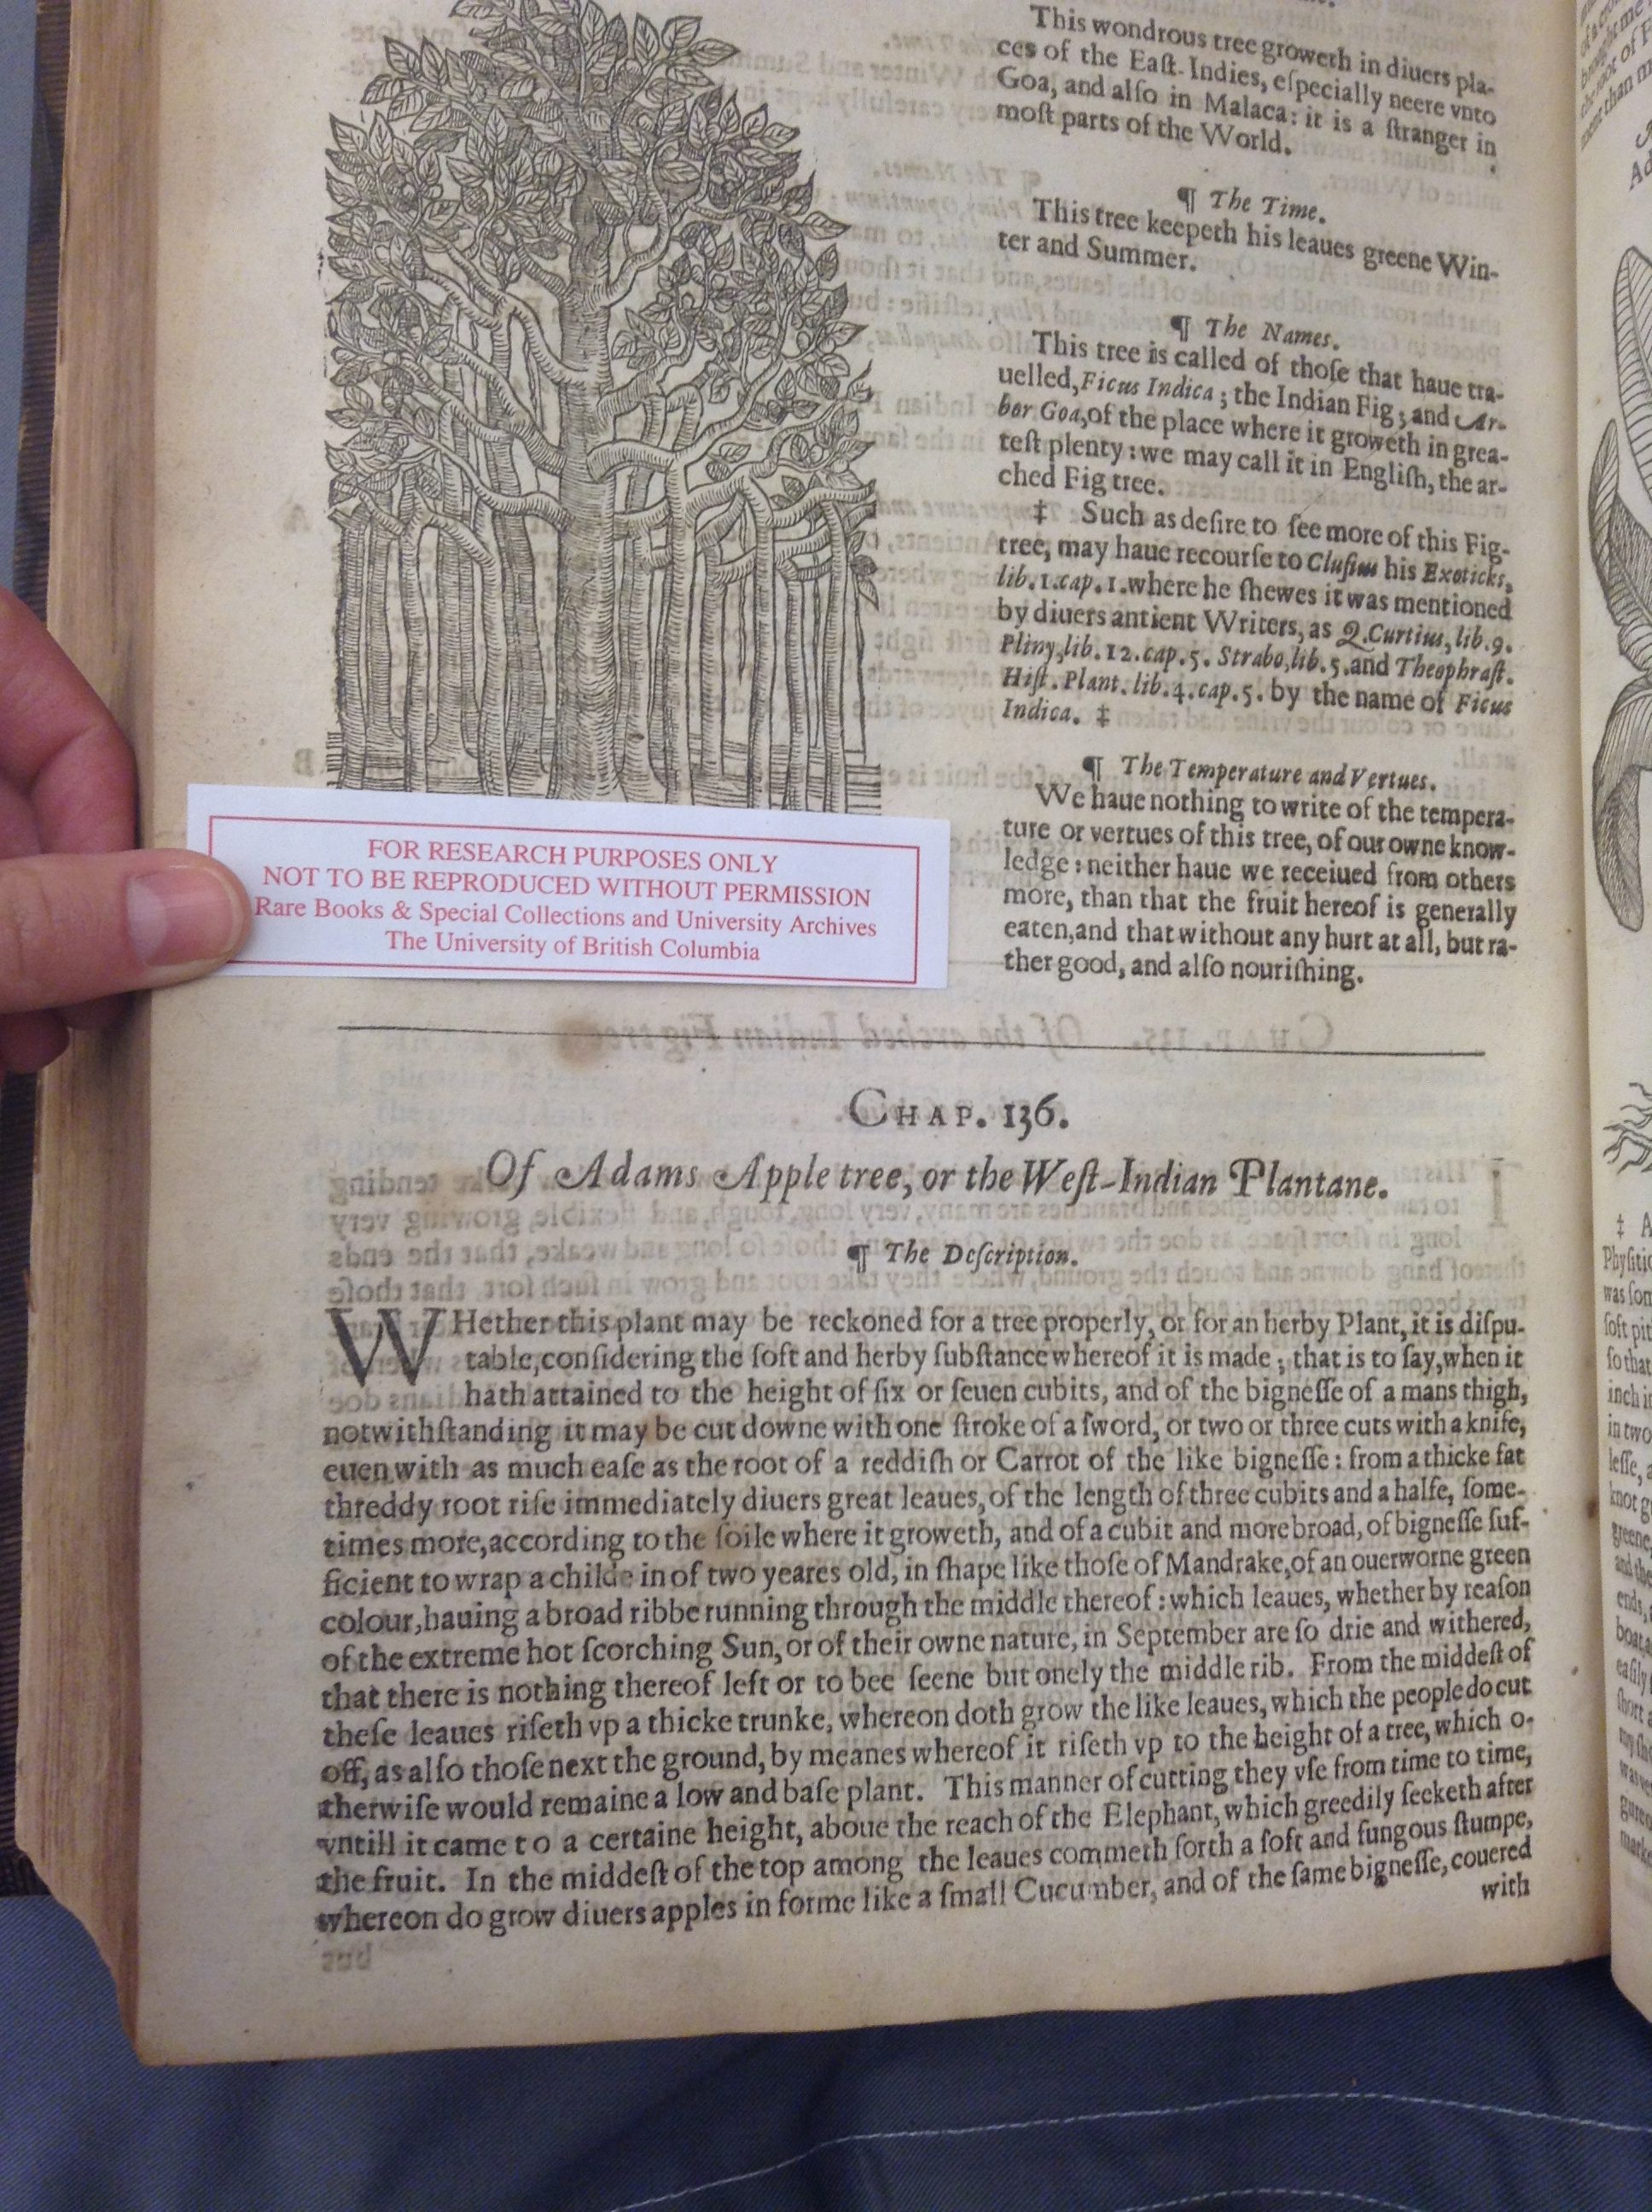 This wondrous tree groweth in diuers pla-
ces of the Eaſt-Indies, eſpecially neere vnto
Goa, and alſo in Malaca: it is a ſtranger in
moſt parts of the World.
¶ The Time.
This tree keepeth his leaues greene Win-
ter and Summer.
¶ The Names.
This tree is called of thoſe that haue tra-
uelled, Ficus Indica; the Indian Fig; and Ar-
bor Goa, of the place where it groweth in grea-
teſt plenty: we may call it in Engliſh, the ar-
ched Fig tree.
‡ Such as deſire to ſee more of this Fig-
tree, may haue recourſe to Cluſius his Exoticks,
lib.1.cap.1. where he ſhewes it was mentioned
by diuers antient Writers, as Q.Curtius, lib.9.
Pliny, lib.12.cap.5. Strabo, lib.5. and Theophraſt.
Hiſt. Plant. lib.4.cap.5. by the name of Ficus
Indica. ‡
¶ The Temperature and Vertues.
We haue nothing to write of the tempera-
ture or vertues of this tree, of our owne know-
ledge: neither haue we receiued from others
more, than that the fruit hereof is generally
eaten, and that without any hurt at all, but ra-
ther good, and alſo nouriſhing.
FOR RESEARCH PURPOSES ONLY
NOT TO BE REPRODUCED WITHOUT PERMISSION
Rare Books & Special Collections and University Archives
The University of British Columbia
CHAP. 136.
Of Adams Apple tree, or the Weſt-Indian Plantane.
¶ The Deſcription.
WHether this plant may be reckoned for a tree properly, or for an herby Plant, it is diſpu-
table, conſidering the ſoft and herby ſubſtance whereof it is made; that is to ſay, when it
hath attained to the height of ſix or ſeuen cubits, and of the bigneſſe of a mans thigh,
notwithſtanding it may be cut downe with one ſtroke of a ſword, or two or three cuts with a knife,
euen with as much eaſe as the root of a reddiſh or Carrot of the like bigneſſe: from a thicke fat
threddy root riſe immediately diuers great leaues, of the length of three cubits and a halfe, ſome-
times more, according to the ſoile where it groweth, and of a cubit and more broad, of bigneſſe ſuf-
ficient to wrap a childe in of two yeares old, in ſhape like thoſe of Mandrake, of an ouerworne green
colour, hauing a broad ribbe running through the middle thereof: which leaues, whether by reaſon
of the extreme hot ſcorching Sun, or of their owne nature, in September are ſo drie and withered,
that there is nothing thereof left or to bee ſeene but onely the middle rib. From the middeſt of
theſe leaues riſeth vp a thicke trunke, whereon doth grow the like leaues, which the people do cut
off, as alſo thoſe next the ground, by meanes whereof it riſeth vp to the height of a tree, which o-
therwiſe would remaine a low and baſe plant. This manner of cutting they vſe from time to time,
vntill it came to a certaine height, aboue the reach of the Elephant, which greedily ſeeketh after
the fruit. In the middeſt of the top among the leaues commeth forth a ſoft and fungous ſtumpe,
whereon do grow diuers apples in forme like a ſmall Cucumber, and of the ſame bigneſſe, couered
with